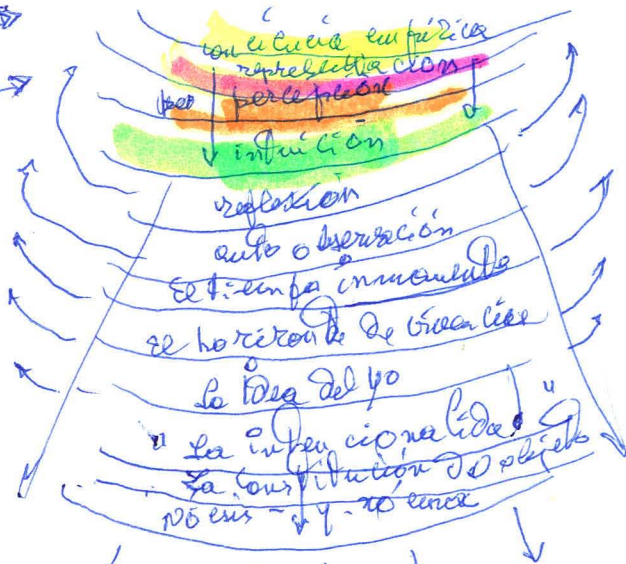 conciencia empírica
representación
percepción
intuición
reflexión
auto observación
El tiempo inmanente
el horizonte de vivencias
La idea del yo
"La intencionalidad"
La constitución del objeto
Nóesis - y - nóema